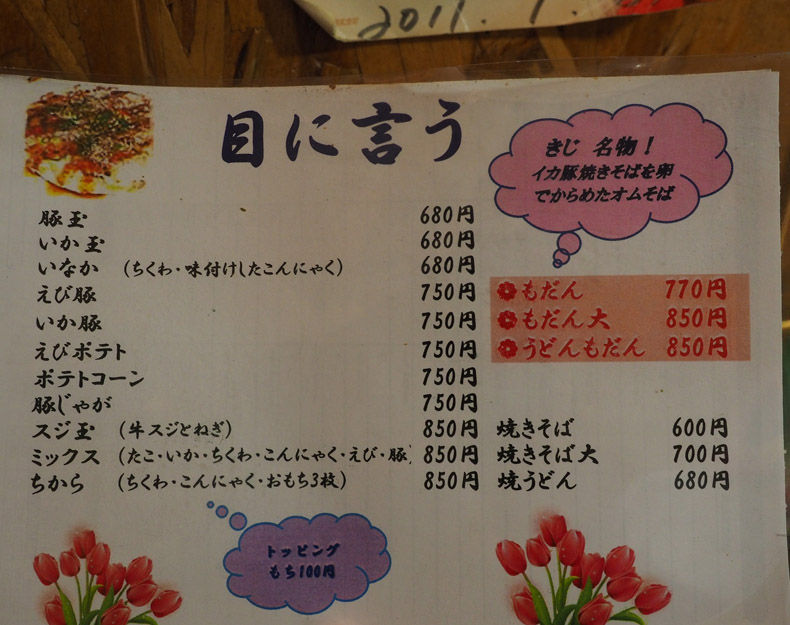 2011.1.
目に言う
きじ 名物！
イカ豚焼きそばを卵
でからめたオムそば
豚玉 680円
いか玉 680円
いなか (ちくわ・味付けしたこんにゃく) 680円
えび豚 750円
いか豚 750円
えびポテト 750円
ポテトコーン 750円
豚じゃが 750円
スジ玉 (牛スジとねぎ) 850円
ミックス (たこ・いか・ちくわ・こんにゃく・えび・豚) 850円
ちから (ちくわ・こんにゃく・おもち3枚) 850円
もだん 770円
もだん大 850円
うどんもだん 850円
焼きそば 600円
焼きそば大 700円
焼うどん 680円
トッピング
もち100円